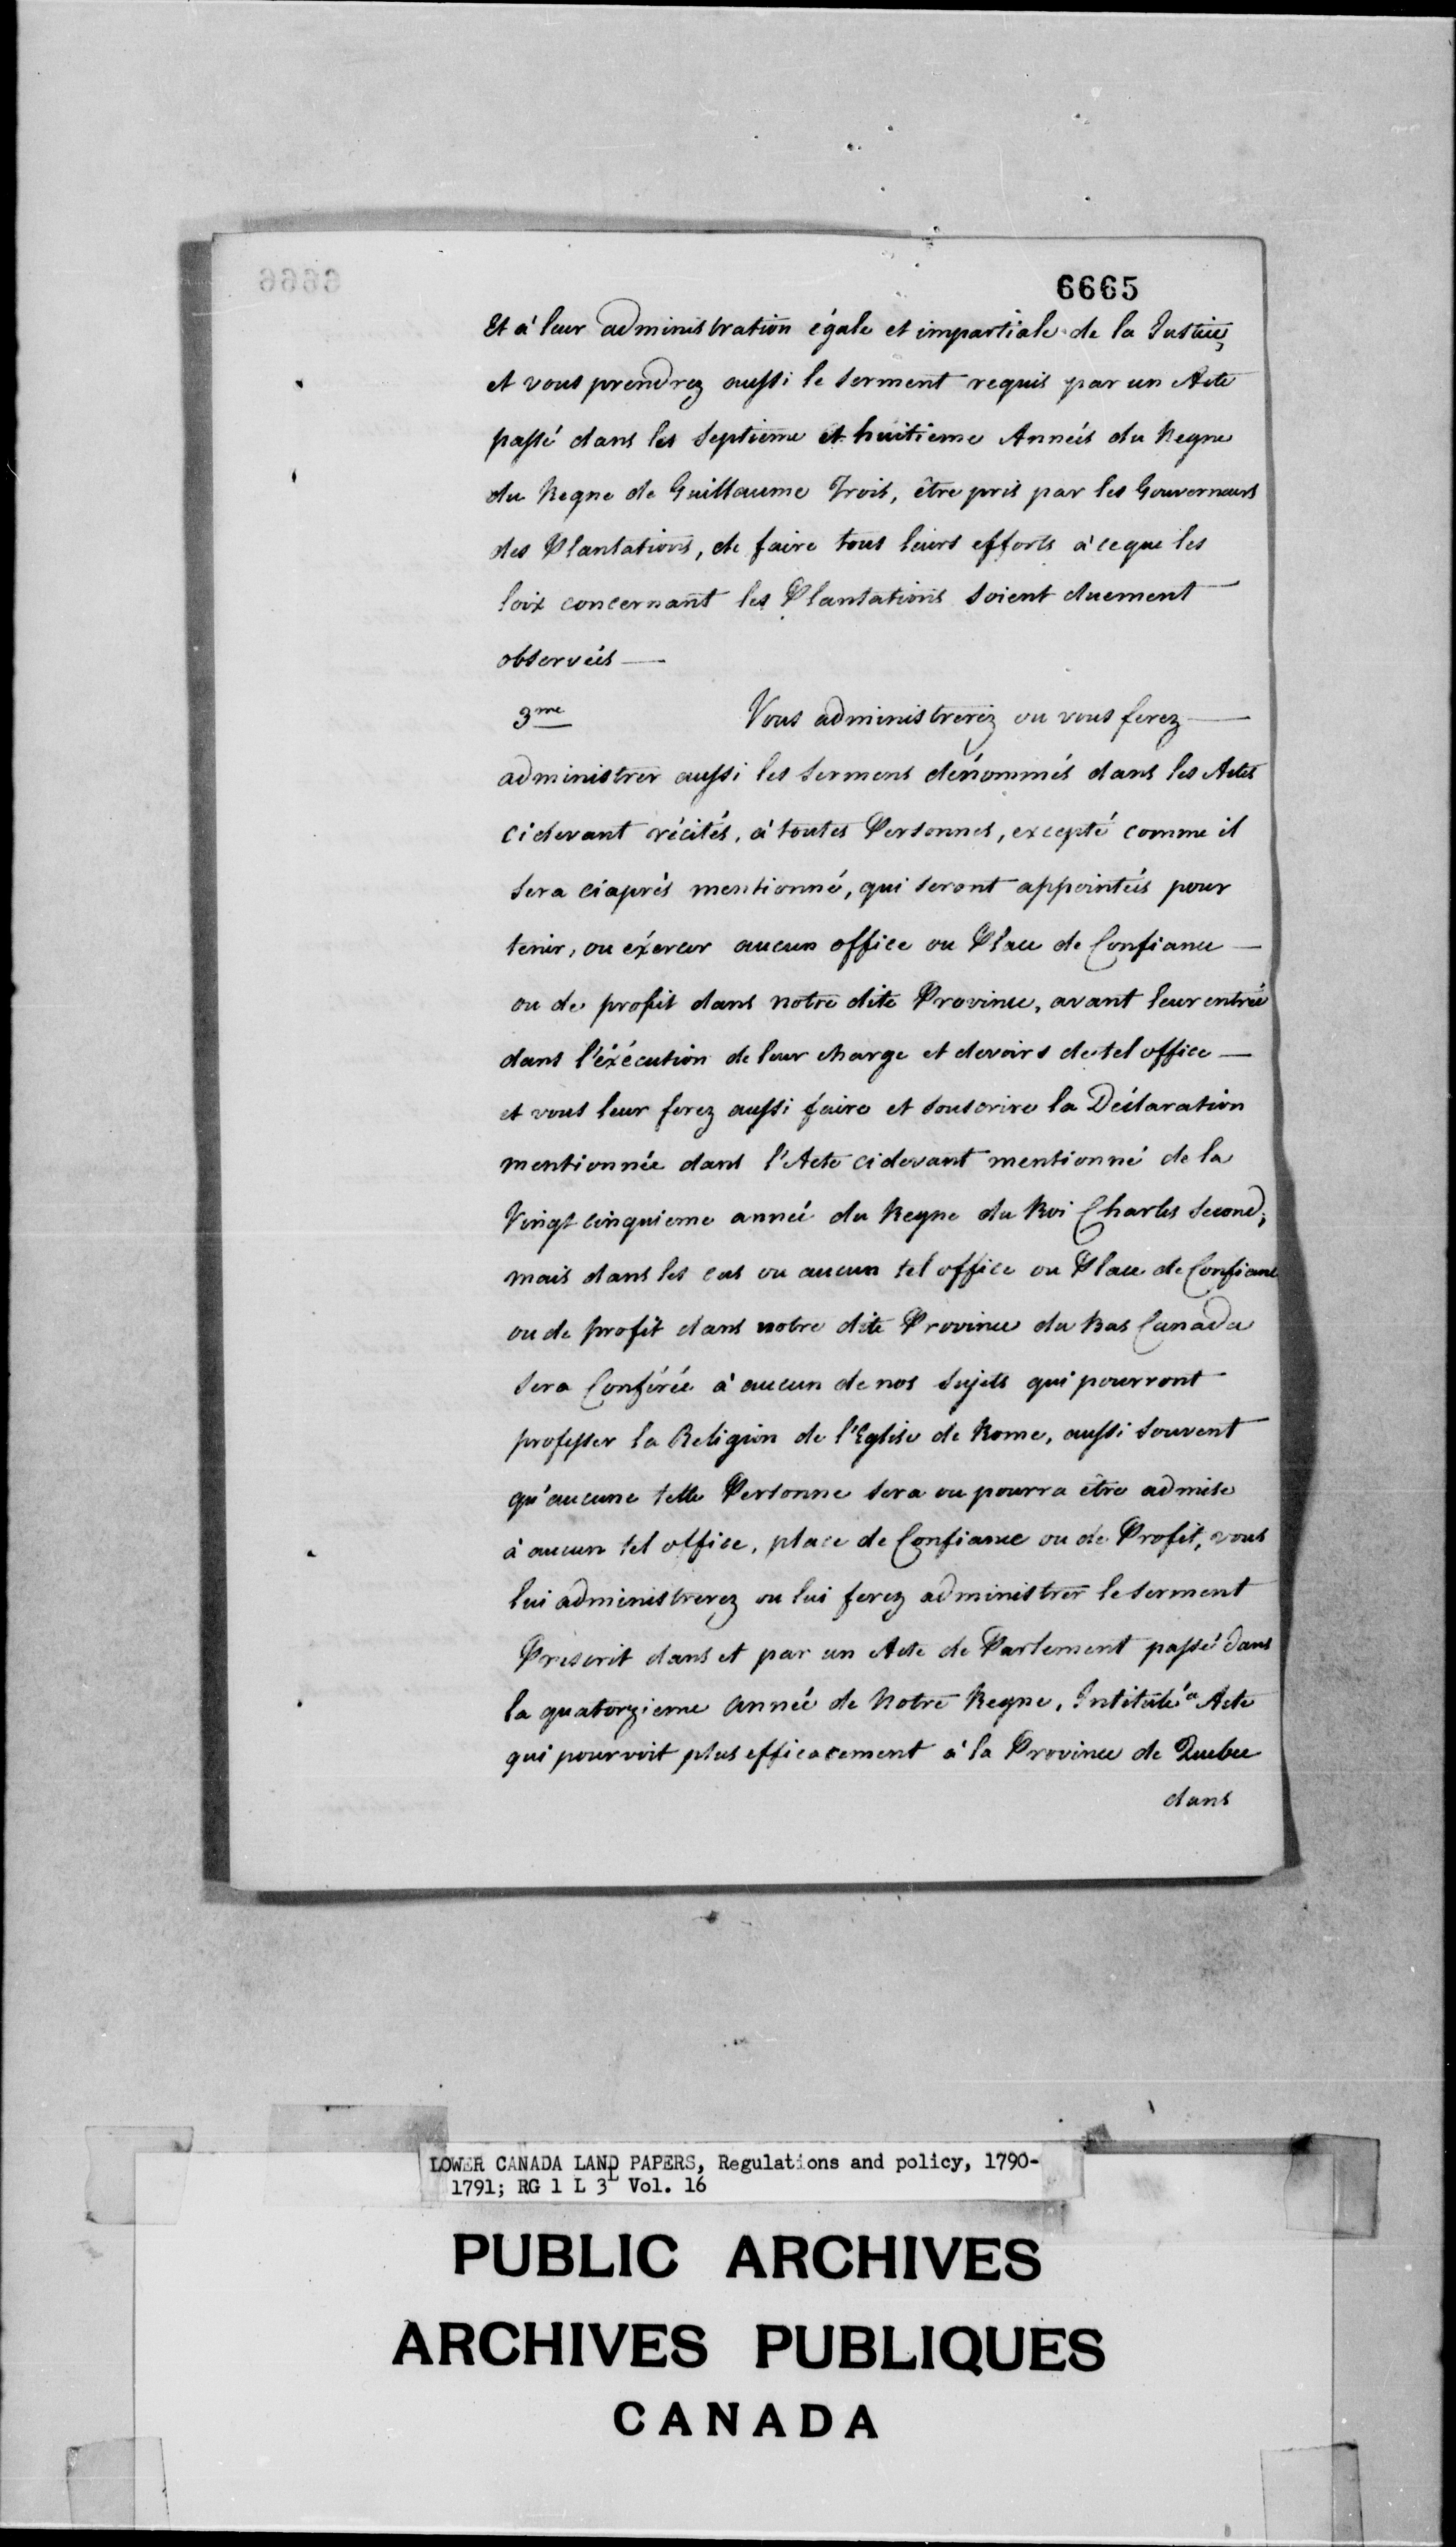 6665
Et à leur administration égale et impartiale de la Justice,
et vous prendrez aussi le serment requis par un Acte
passé dans les septieme et huitieme Années du Regne
du Regne de Guillaume Trois, être pris par les Gouverneurs
des Plantations, de faire tous leurs efforts à ce que les
loix concernant les Plantations soient duement
observées —
3me Vous administrerez ou vous ferez —
administrer aussi les sermens dénommés dans les Actes
cidevant récités, à toutes Personnes, excepté comme il
sera ciaprés mentionné, qui seront appointées pour
tenir, ou éxercer aucun office ou Place de Confiance —
ou de profit dans notre dite Province, avant leur entrée
dans l'éxécution de leur charge et devoirs de tel office —
et vous leur ferez aussi faire et souscrire la Déclaration
mentionnée dans l'Acte cidevant mentionné de la
Vingt cinquieme année du Regne du Roi Charles Second;
mais dans les cas ou aucun tel office ou Place de Confiance
ou de profit dans notre dite Province du Bas Canada
sera Conférée à aucun de nos sujets qui pourront
professer la Religion de l'Eglise de Rome, aussi souvent
qu'aucune telle Personne sera ou pourra être admise
à aucun tel office, place de Confiance ou de Profit, vous
lui administrerez ou lui ferez administrer le serment
Prescrit dans et par un Acte de Parlement passé dans
la quatorzieme année de Notre Regne, Intitulé "Acte
qui pourvoit plus efficacement à la Province de Quebec
dans
LOWER CANADA LAND PAPERS, Regulations and policy, 1790-
1791; RG 1 L 3L Vol. 16
PUBLIC ARCHIVES
ARCHIVES PUBLIQUES
CANADA